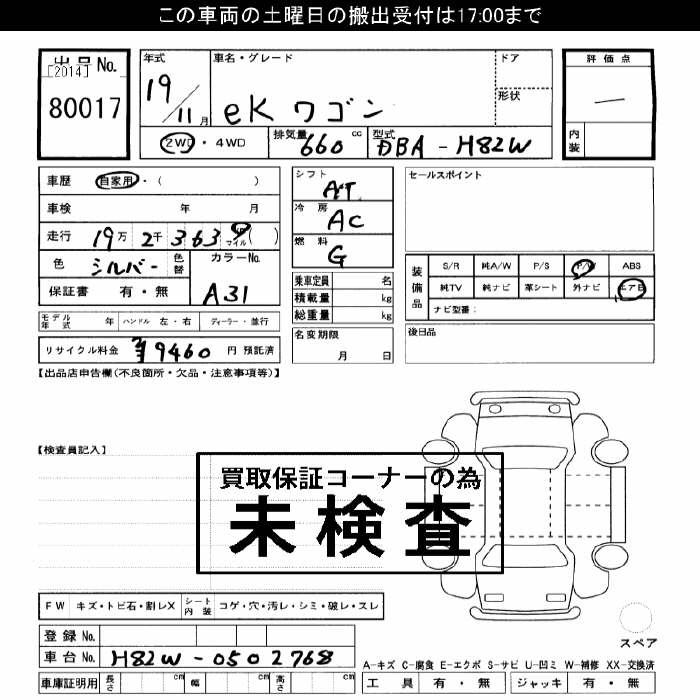 この車両の土曜日の搬出受付は17:00まで
出品No. [2014] 80017
年式 19/11月
車名・グレード eKワゴン
ドア
形状
評価点 ―
内装
2WD・4WD
排気量 660 cc
型式 DBA-H82W
車歴 自家用・( )
車検 年 月
走行 19万2千3639 マイル( )
色 シルバー 色替
カラーNo. A31
保証書 有・無
シフト AT
冷房 AC
燃料 G
乗車定員 名
積載量 kg
総重量 kg
セールスポイント
装備品
S/R 純A/W P/S P/W ABS
純TV 純ナビ 革シート 外ナビ エアB
ナビ型番:
モデル年式 年 ハンドル 左・右 ディーラー・並行
名変期限 月 日
後日品
リサイクル料金 ¥9460 円 預託済
【出品店申告欄(不良箇所・欠品・注意事項等)】
【検査員記入】
買取保証コーナーの為
未検査
FW キズ・トビ石・割レX シート内装 コゲ・穴・汚レ・シミ・破レ・スレ
登録No.
車台No. H82W-0502768
車庫証明用 長さ cm 幅 cm 高さ cm
スペア
A-キズ C-腐食 E-エクボ S-サビ U-凹ミ W-補修 XX-交換済
工具 有・無 ジャッキ 有・無